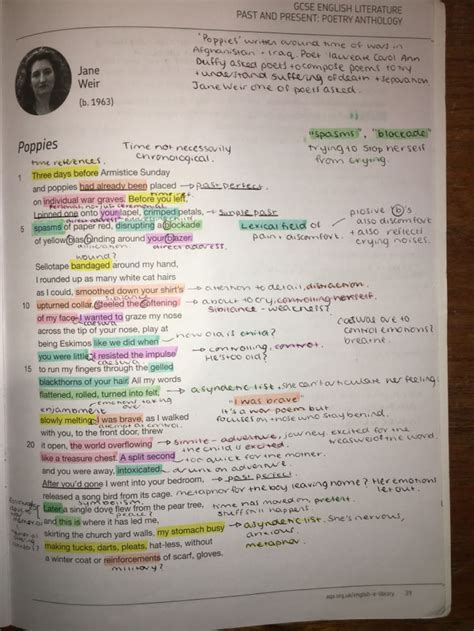 GCSE ENGLISH LITERATURE
PAST AND PRESENT: POETRY ANTHOLOGY
'Poppies' written around time of wars in
Afghanistan + Iraq. Poet laureate Carol Ann
Duffy asked poets to compose poems to try
+ understand suffering of death + separation
Jane Weir one of poets asked.
Jane
Weir
(b. 1963)
"spasms", "blockade"
trying to stop herself
from crying.
Poppies
Time not necessarily
chronological.
time references.
1 Three days before Armistice Sunday
and poppies had already been placed → past perfect
on individual war graves. Before you left,
I pinned one onto your lapel, crimped petals, → simple past
5 spasms of paper red, disrupting a blockade
of yellow bias binding around your blazer.
alliteration. direct address.
Lexical field of
pain + discomfort
plosive 'b's
also discomfort
+ also reflect
crying noises.
wound?
Sellotape bandaged around my hand,
I rounded up as many white cat hairs
as I could, smoothed down your shirt's → attention to detail, distraction.
sibilance
10 upturned collar, steeled the softening → about to cry, controlling herself.
of my face. I wanted to graze my nose
sibilance - weakness?
caesura
across the tip of your nose, play at
being Eskimos like we did when → how old is child?
you were little. I resisted the impulse → controlling, control.
He's too old?
caesura are to
control emotions?
breathe.
caesura
15 to run my fingers through the gelled
blackthorns of your hair. All my words
flattened, rolled, turned into felt, → asyndetic list, she can't articulate her feeling.
enjambment
slowly melting. I was brave, as I walked
"I was brave"
It's a war poem but
focuses on those who stay behind.
with you, to the front door, threw
20 it open, the world overflowing → simile - adventure, journey, excited for the
the child is excited.
treasure of the world.
like a treasure chest. A split second → too quick for the mother.
and you were away, intoxicated. → drunk on adventure.
After you'd gone I went into your bedroom, → past perfect
released a song bird from its cage. metaphor for the boy leaving home? Her emotions
let out.
symbolism
Later a single dove flew from the pear tree, time has moved on
peace
and this is where it has led me, present.
stuff is happen
skirting the church yard walls, my stomach busy → asyndetic list. She's nervous,
anxious
making tucks, darts, pleats, hat-less, without
metaphor
a winter coat or reinforcements of scarf, gloves.
military?
aqa.org.uk/english-e-library 39